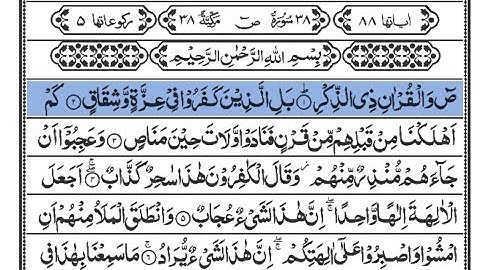 اٰیاتها ٨٨ ٣٨ سُوْرَةُ صٓ مَكِّيَّةٌ ٣٨ رکوعاتها ٥
بِسْمِ اللهِ الرَّحْمٰنِ الرَّحِيْمِ
صٓ وَالْقُرْاٰنِ ذِي الذِّكْرِ ۝١ بَلِ الَّذِيْنَ كَفَرُوْا فِيْ عِزَّةٍ وَّشِقَاقٍ ۝٢ كَمْ
اَهْلَكْنَا مِنْ قَبْلِهِمْ مِّنْ قَرْنٍ فَنَادَوْا وَّلَاتَ حِيْنَ مَنَاصٍ ۝٣ وَعَجِبُوْۤا اَنْ
جَآءَهُمْ مُّنْذِرٌ مِّنْهُمْ ۫ وَقَالَ الْكٰفِرُوْنَ هٰذَا سٰحِرٌ كَذَّابٌ ۝٤ اَجَعَلَ
الْاٰلِهَةَ اِلٰهًا وَّاحِدًا ۖ اِنَّ هٰذَا لَشَيْءٌ عُجَابٌ ۝٥ وَانْطَلَقَ الْمَلَاُ مِنْهُمْ اَنِ
امْشُوْا وَاصْبِرُوْا عَلٰۤى اٰلِهَتِكُمْ ۖ اِنَّ هٰذَا لَشَيْءٌ يُّرَادُ ۝٦ مَا سَمِعْنَا بِهٰذَا فِي